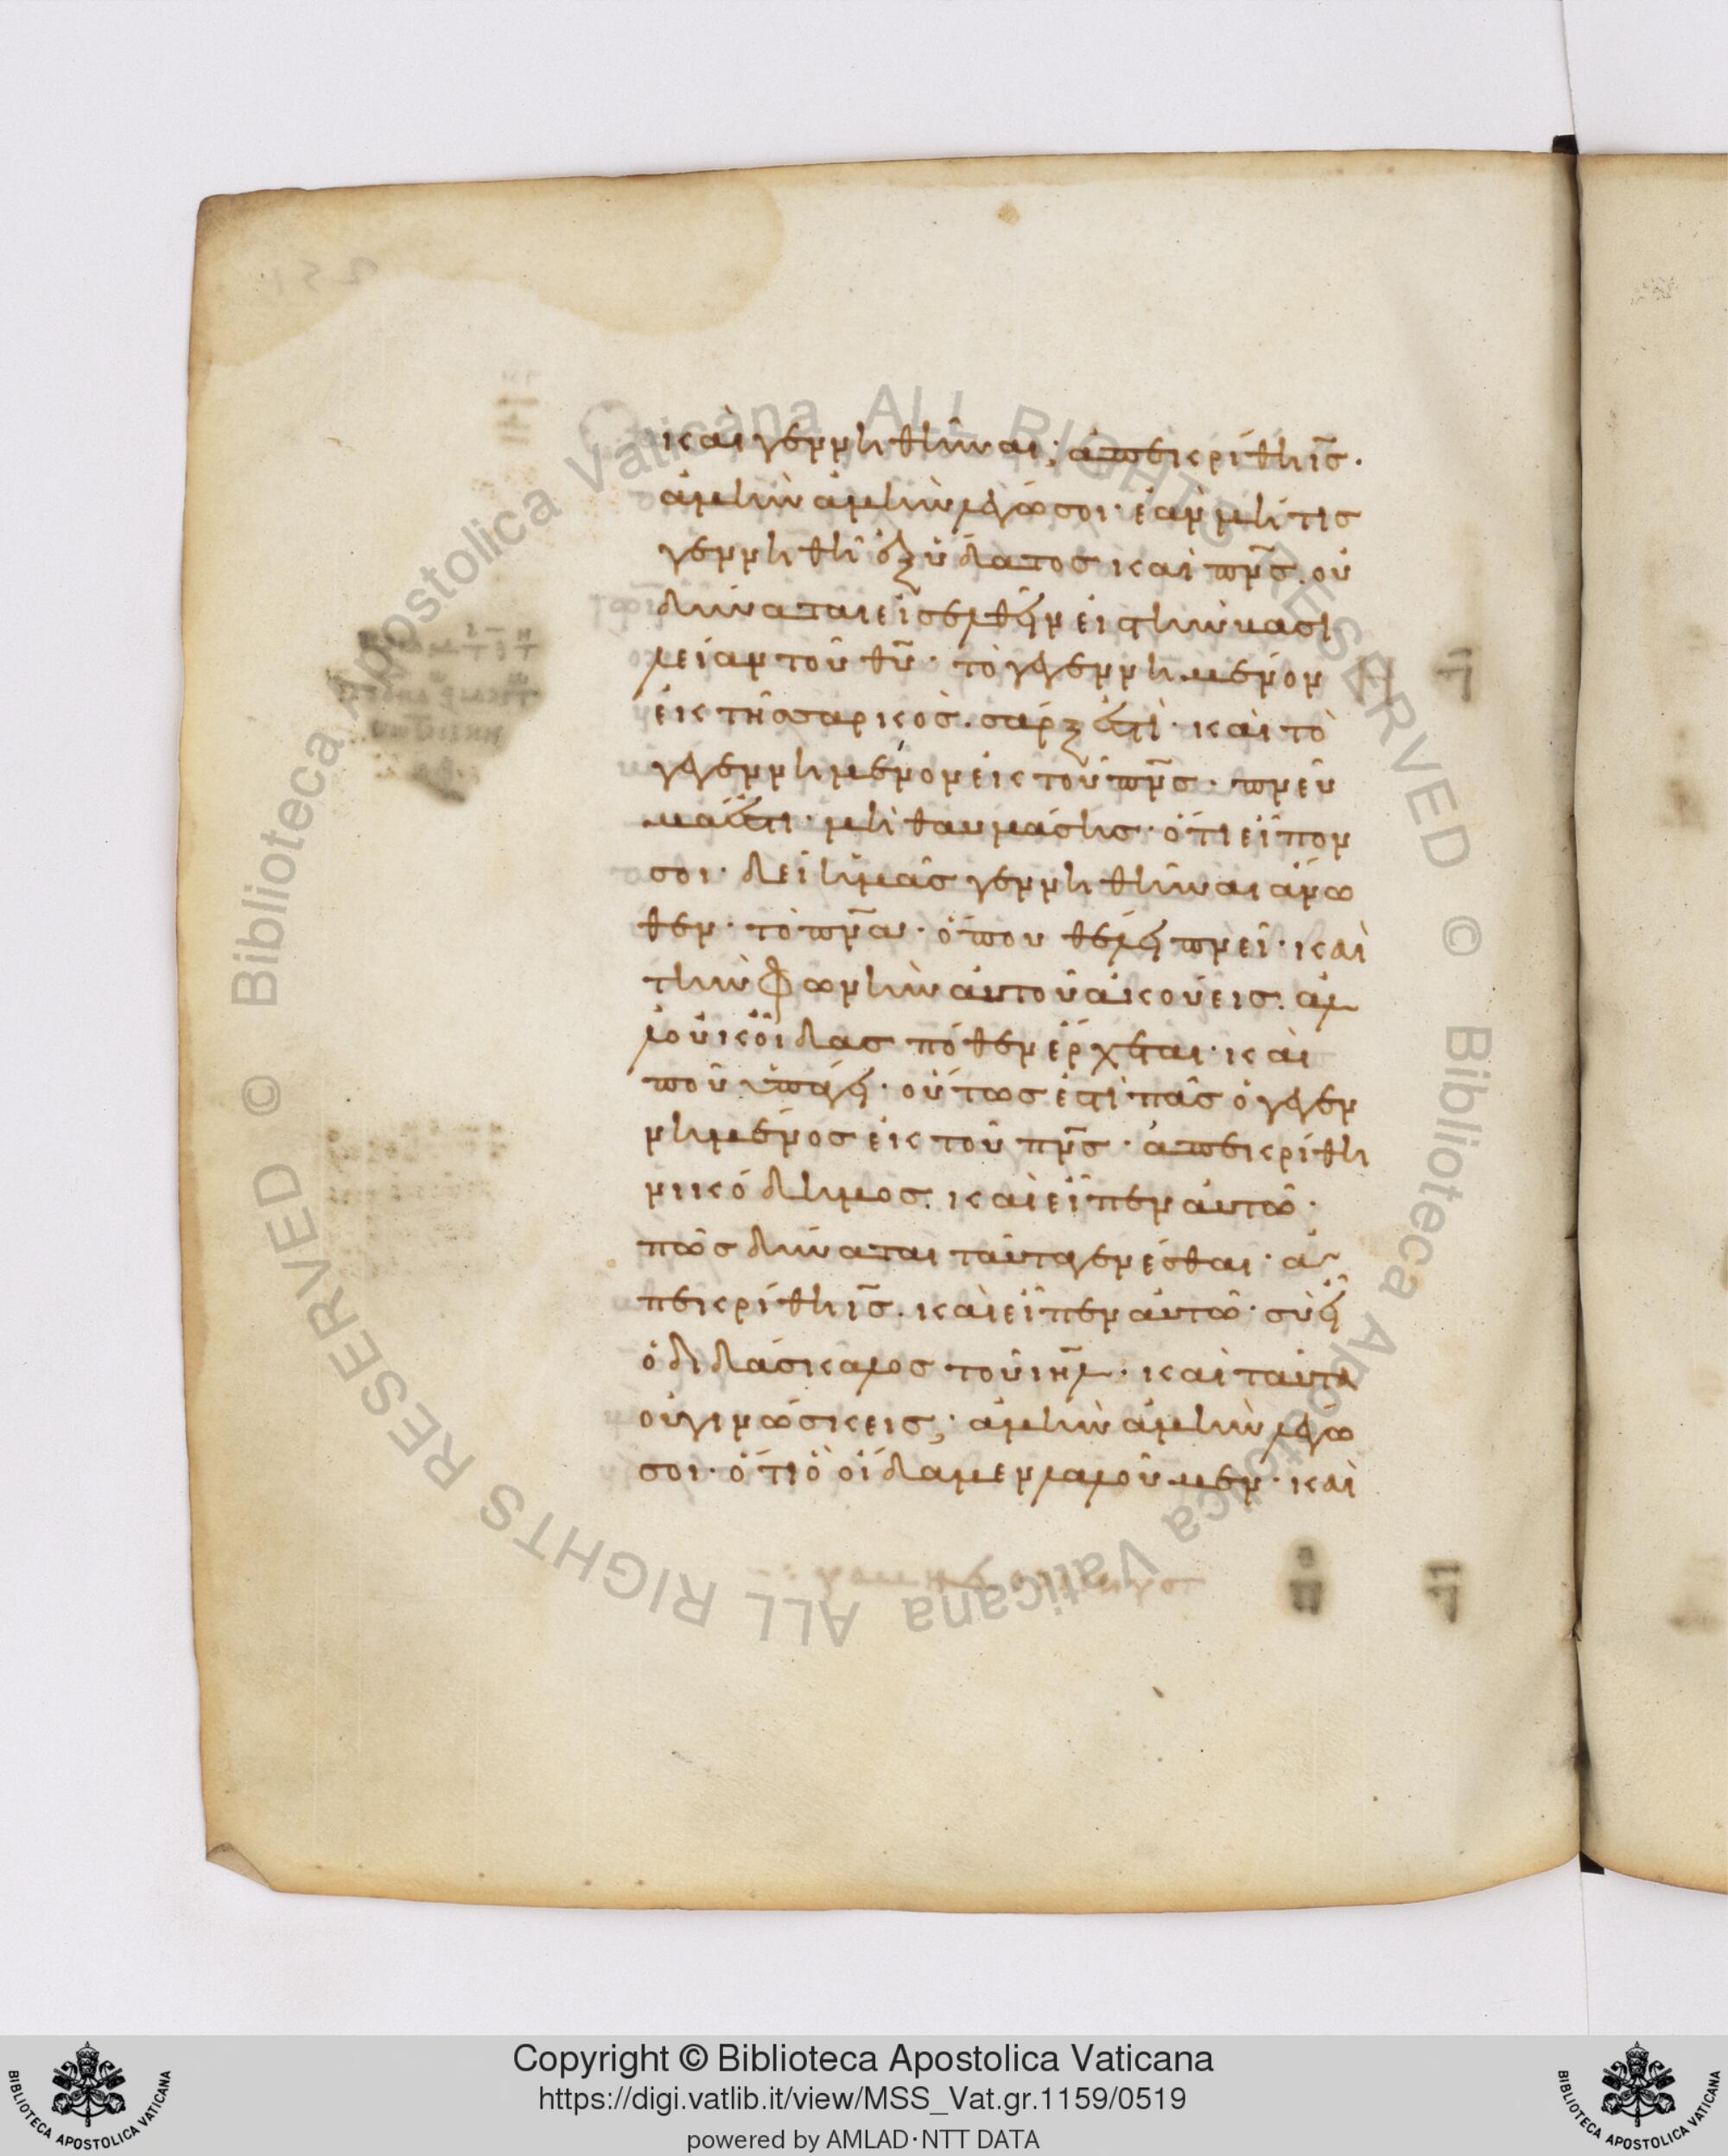 καὶ γεννηθῆναι; ἀπεκρίθη ις̅.
ἀμὴν ἀμὴν λέγω σοι· ἐὰν μή τις
γεννηθῆ ἐξ ὕδατος καὶ πν̅ς. οὐ
δύναται εἰσελθεῖν εἰς τὴν βασι
λείαν τοῦ θυ̅· τὸ γεγεννημένον
ἐκ τῆς σαρκὸς. σάρξ ἐστὶ· καὶ τὸ
γεγεννημένον ἐκ τοῦ πν̅ς· πνεῦ
μά ἐστι· μὴ θαυμάσης· ὅτι εἶπον
σοι· δεῖ ὑμᾶς γεννηθῆναι ἄνω
θεν· τὸ πν̅α· ὅπου θέλει πνεῖ· καὶ
τὴν φωνὴν αὐτοῦ ἀκούεις. ἀλ
λ οὐκ οἶδας πόθεν ἔρχεται· καὶ
ποῦ ὑπάγει· οὕτως ἐστὶ πᾶς ὁ γεγεν
νημένος ἐκ τοῦ πν̅ς· ἀπεκρίθη
νικόδημος. καὶ εἶπεν αὐτῶ·
πῶς δύναται ταῦτα γενέσθαι· ἀ
πεκρίθη ις̅. καὶ εἶπεν αὐτῶ· σὺ εἶ
ὁ διδάσκαλος τοῦ ιηλ̅· καὶ ταῦτα
οὐ γινώσκεις; ἀμὴν ἀμὴν λέγω
σοι· ὅτι ὃ οἴδαμεν λαλοῦμεν· καὶ
Copyright © Biblioteca Apostolica Vaticana
https://digi.vatlib.it/view/MSS_Vat.gr.1159/0519
powered by AMLAD·NTT DATA
BIBLIOTECA APOSTOLICA VATICANA
BIBLIOTECA APOSTOLICA VATICANA
© Biblioteca Apostolica Vaticana ALL RIGHTS RESERVED
© Biblioteca Apostolica Vaticana ALL RIGHTS RESERVED